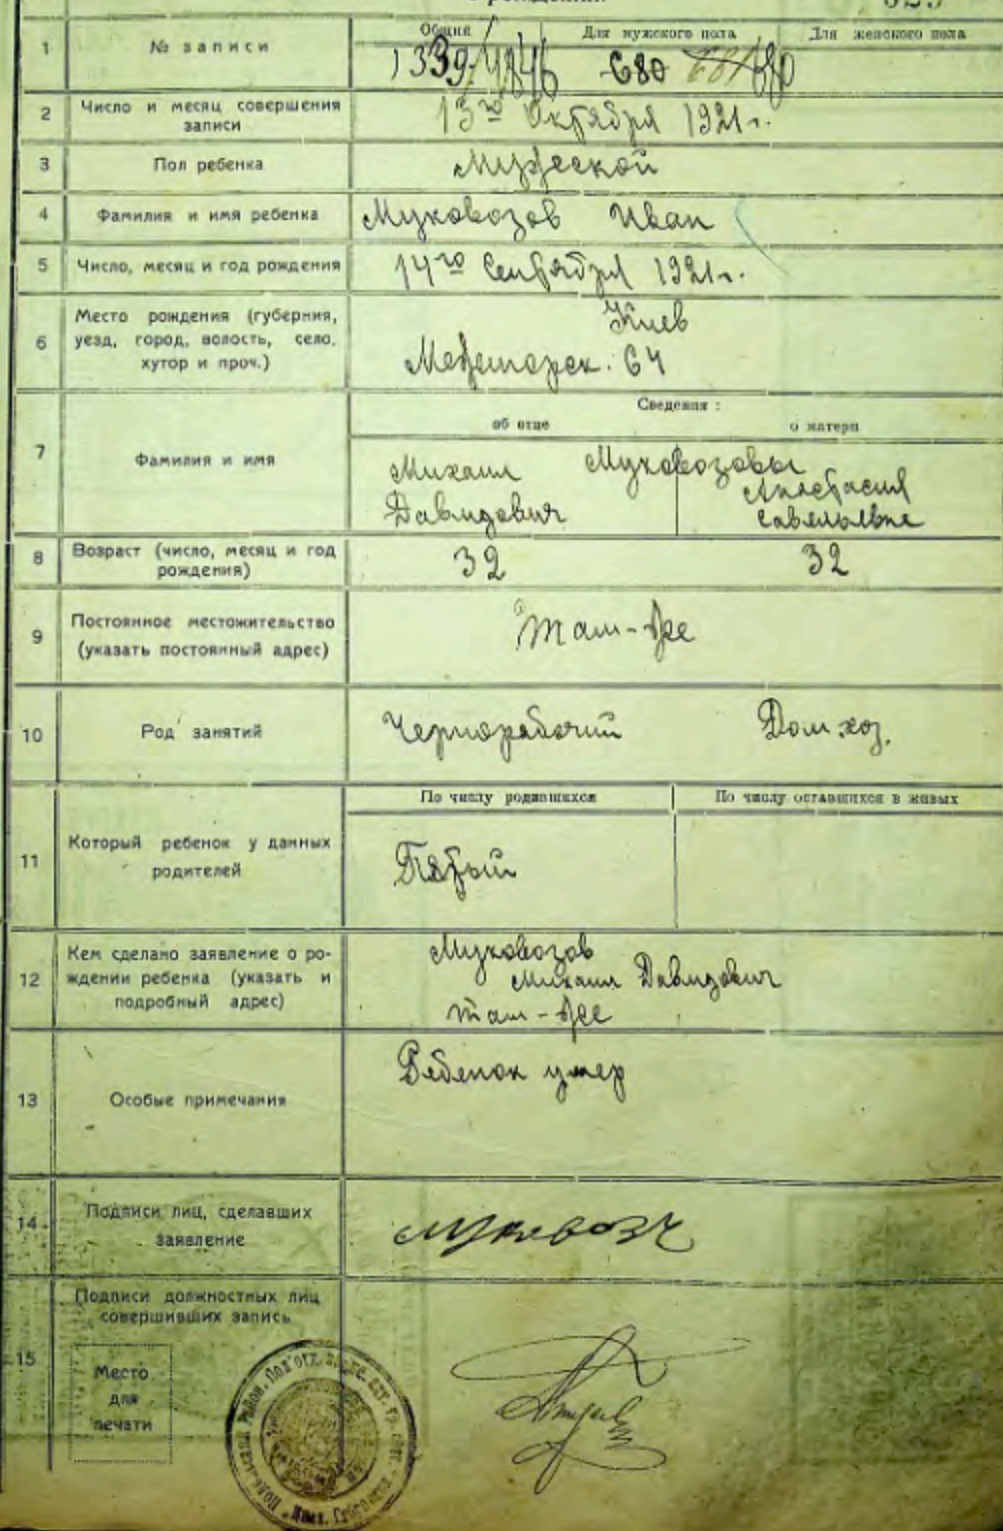 1
№ записи
Общий
Для мужского пола
Для женского пола
1339/1846 680 681 680
2
Число и месяц совершения
записи
13го Октября 1921 г.
3
Пол ребенка
Мужеской
4
Фамилия и имя ребенка
Муковозов Иван
5
Число, месяц и год рождения
14го Сентября 1921 г.
6
Место рождения (губерния,
уезд, город, волость, село,
хутор и проч.)
Киев
Межегорск. 64
Сведения:
об отце
о матери
7
Фамилия и имя
Муковозовы
Михаил
Давидович
Анастасия
Савельевна
8
Возраст (число, месяц и год
рождения)
32
32
9
Постоянное местожительство
(указать постоянный адрес)
Там-же
10
Род занятий
Чернорабочий
Дом. хоз.
По числу родившихся
По числу оставшихся в живых
11
Который ребенок у данных
родителей
Пятый
12
Кем сделано заявление о ро-
ждении ребенка (указать и
подробный адрес)
Муковозов
Михаил Давидович
там-же
13
Особые примечания
Ребенок умер
14
Подписи лиц, сделавших
заявление
15
Подписи должностных лиц
совершивших запись
Место
для
печати